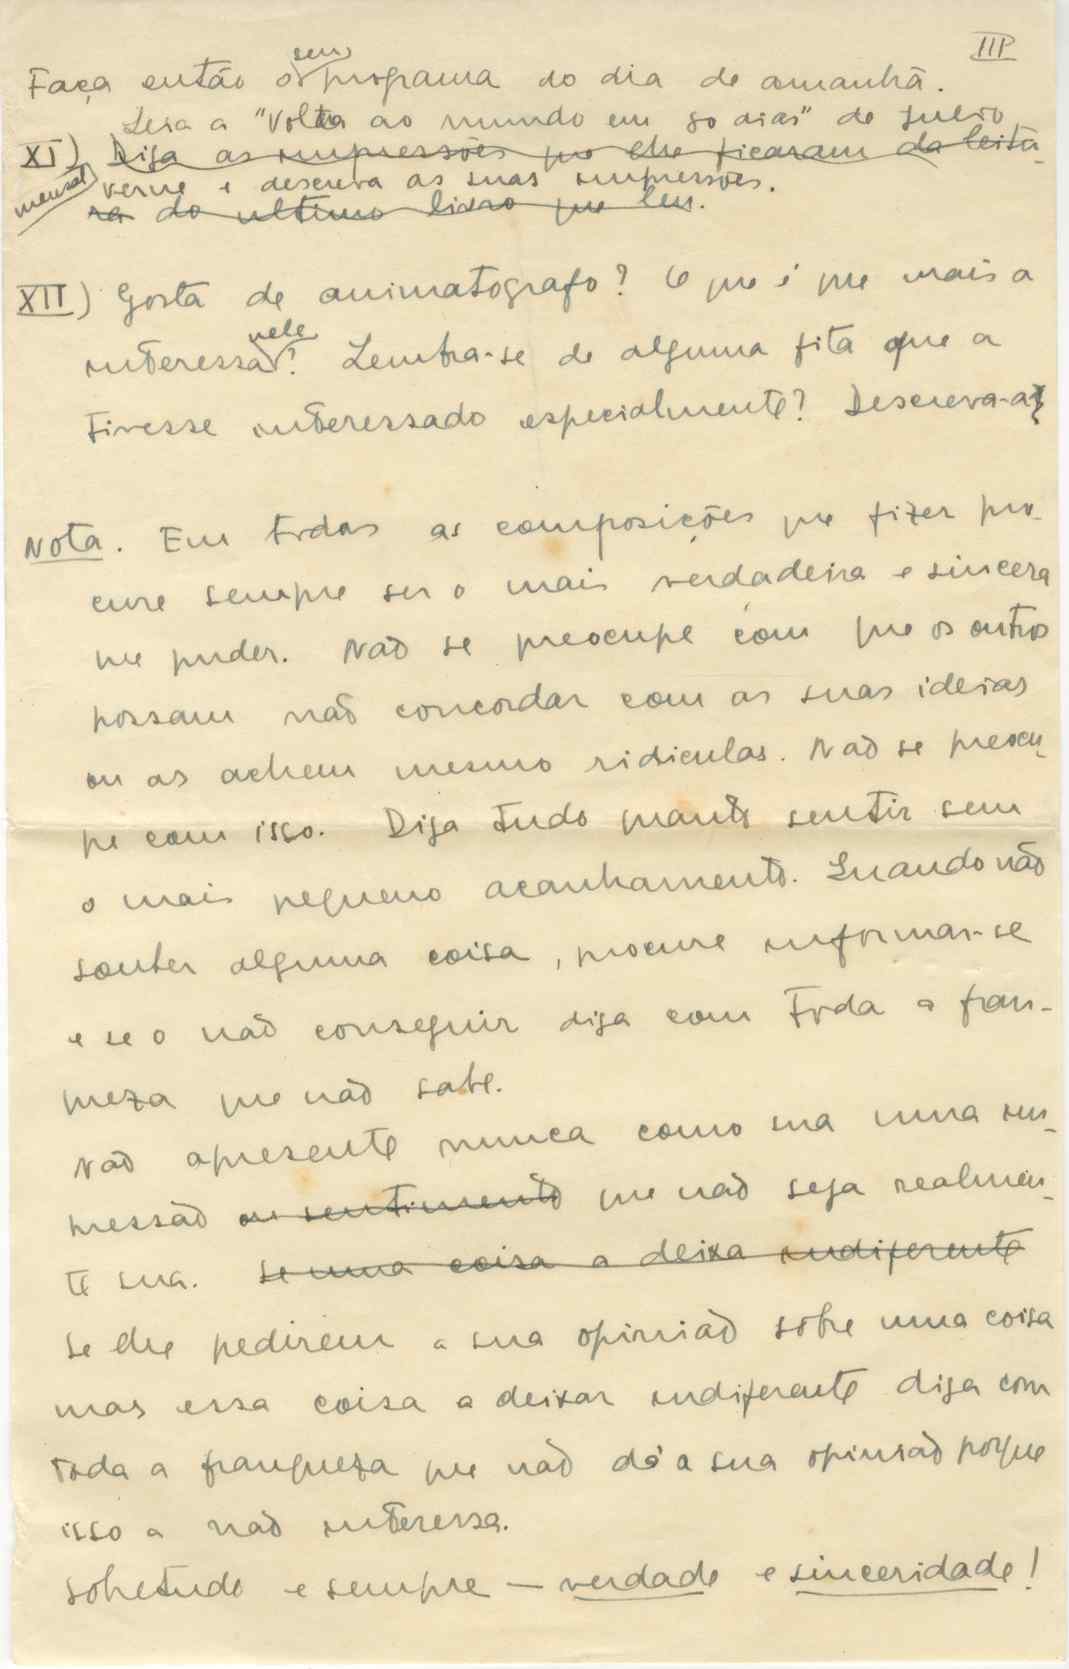 III
Faça então o seu programa do dia de amanhã.
Leia a "Volta ao mundo em 80 dias" de Julio
XI) Diga as impressões que lhe ficaram da leitu-
mensal verne e descreva as suas impressões.
ra do ultimo livro que leu.
XII) Gosta de animatografo? O que é que mais a
interessa nele? Lembra-se de alguma fita que a
tivesse interessado especialmente? Descreva-a
Nota. Em todas as composições que fizer pro-
cure sempre ser o mais verdadeira e sincera
que puder. Não se preocupe com que os outros
possam não concordar com as suas ideias
ou as achem mesmo ridiculas. Não se preocu-
pe com isso. Diga tudo quanto sentir sem
o mais pequeno acanhamento. Quando não
souber alguma coisa, procure informar-se
e se o não conseguir diga com toda a fran-
queza que não sabe.
Não apresente nunca como sua uma im-
pressão ou sentimento que não seja realmen-
te sua. Se uma coisa a deixa indiferente
Se lhe pedirem a sua opinião sobre uma coisa
mas essa coisa a deixar indiferente diga com
toda a franqueza que não dá a sua opinião porque
isso a não interessa.
Sobretudo e sempre — verdade e sinceridade!